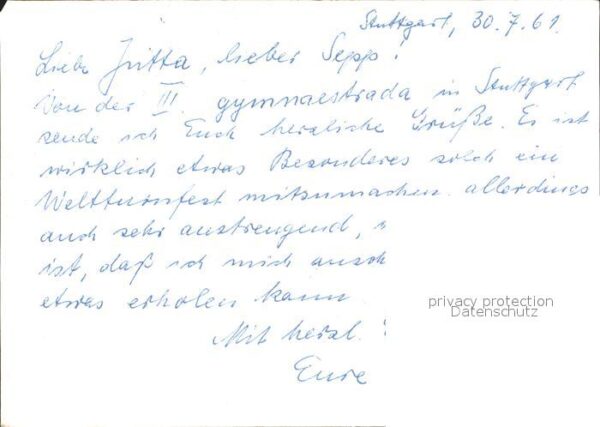 Stuttgart, 30.7.61.
Liebe Jutta, lieber Sepp!
Von der III. gymnaestrada in Stuttgart
sende ich Euch herzliche Grüße. Es ist
wirklich etwas Besonderes solch ein
Weltturnfest mitzumachen. allerdings
auch sehr anstrengend,
ist, daß ich mich ansch
etwas erholen kann
Mit herzl.
Eure
privacy protection
Datenschutz